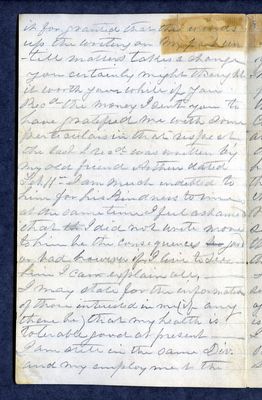 it for granted that the words
up the writing on my part un
till matters takes a change
you certainly might thought
it worth your while if you
Recd the money I sent you to
have gratified me with some
particulars in that respect
the last I recd was written by
my old friend Arthur dated
Feb 11th I am much indebted to
him for his kindness to me
at the same time I feel ashamed
that I did not write more
to him be the consequences good
or bad however if I live to see
him I can explain all,
I may state for the information
of those interested in me (if any
there be) that my health is
tolerable good at present
I am still in the same Div.
and my employment the